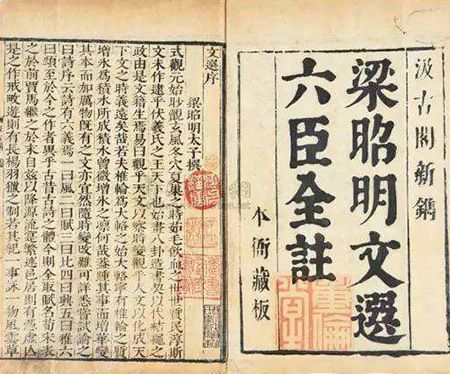 汲古閣新鐫
梁昭明文選
六臣全註
本衙藏板
文選序
梁昭明太子撰
式觀元始眇覿玄風冬穴夏巢之時茹毛飲血之世世質民淳斯
文未作逮乎伏羲氏之王天下也始畫八卦造書契以代結繩之
政由是文籍生焉易曰觀乎天文以察時變觀乎人文以化成天
下文之時義遠矣哉若夫椎輪爲大輅之始大輅寧有椎輪之質
增冰爲積水所成積水曾微增冰之凜何哉蓋踵其事而增華變
其本而加厲物既有之文亦宜然隨時變改難可詳悉嘗試論之
曰詩序云詩有六義焉一曰風二曰賦三曰比四曰興五曰雅六
曰頌至於今之作者異乎古昔古詩之體今則全取賦名荀宋表
之於前賈馬繼之於末自茲以降源流寔繁述邑居則有憑虛亡
是之作戒畋遊則有長楊羽獵之制若其紀一事詠一物風雲草